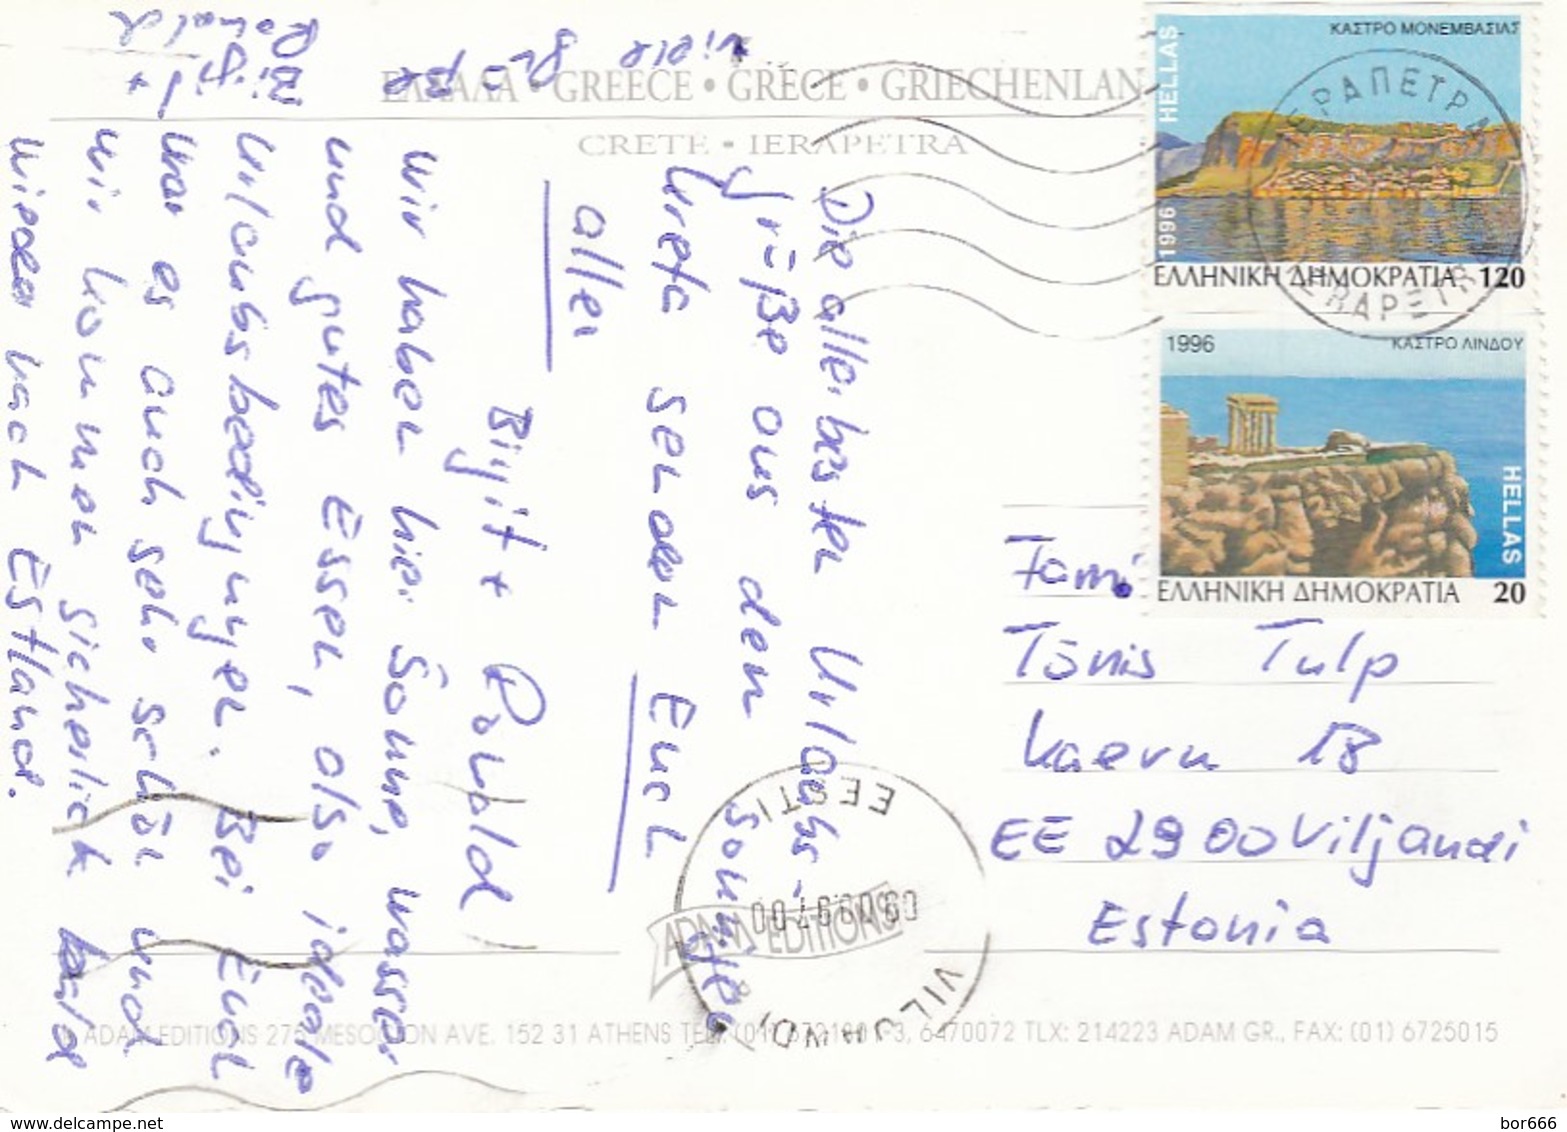 ΚΑΣΤΡΟ ΜΟΝΕΜΒΑΣΙΑΣ
HELLAS
1996
ΕΛΛΗΝΙΚΗ ΔΗΜΟΚΡΑΤΙΑ 120
ΙΕΡΑΠΕΤΡΑ
IERAPETRA
1996
ΚΑΣΤΡΟ ΛΙΝΔΟΥ
HELLAS
ΕΛΛΗΝΙΚΗ ΔΗΜΟΚΡΑΤΙΑ 20
ΕΛΛΑΔΑ • GREECE • GRÈCE • GRIECHENLAN
CRETE • IERAPETRA
Die allerbesten Urlaubs-
grüße aus dem sonnigen
Kreta senden Euch
allen
Birgit + Ronald
Wir haben hier Sonne, Wasser
und gutes Essen, also ideale
Urlaubsbedingungen. Bei Euch
war es auch sehr schön und
wir kommen sicherlich bald
wieder nach Estland.
Viele Grüße
Birgit +
Ronald
Fam.
Tõnis Tulp
Kaevu 18
EE 2900 Viljandi
Estonia
EESTI
VILJANDI
ADAM EDITIONS
ADAM EDITIONS 275 MESOGION AVE. 152 31 ATHENS TEL. (01) 6472072 TLX: 214223 ADAM GR., FAX: (01) 6725015
bor666
www.delcampe.net